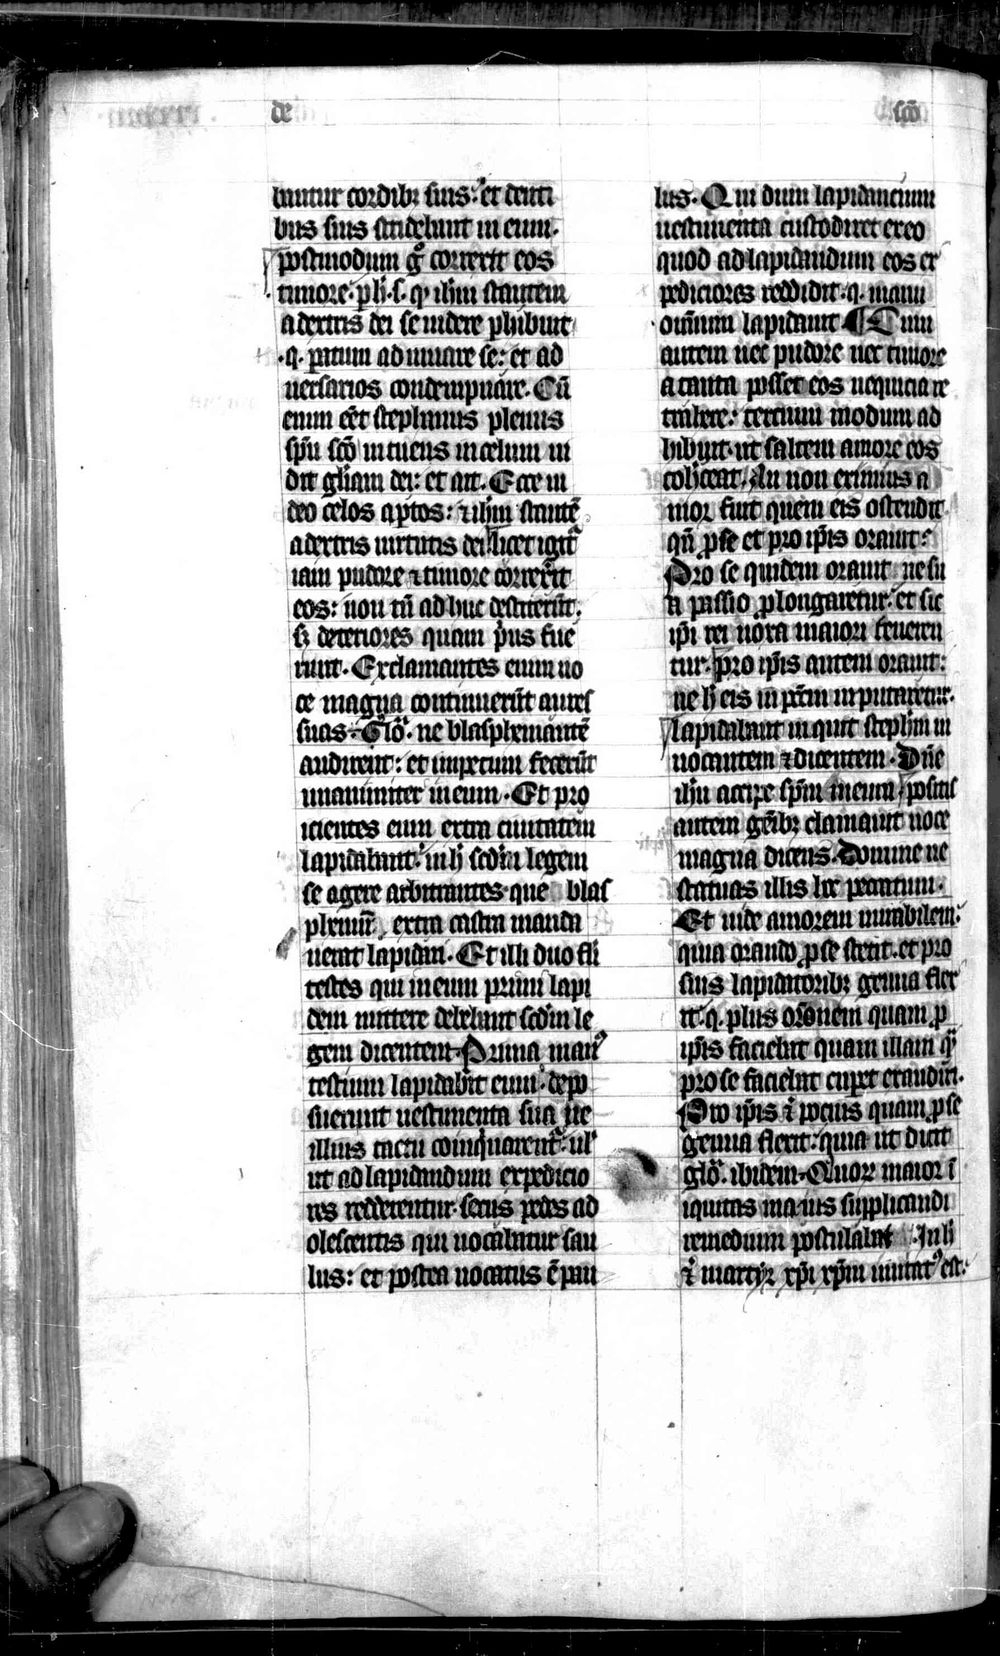 de
sco
buntur cordibꝫ suis: et denti
bus suis stridebant in eum.
postmodum gͦ correxit eos
timore. ph.s. qꝫ ihm stantem
a dextris dei se uidere phibuit
.q. paratum adiuuare se: et ad
uersarios condempnare. Cū
enim eēt stephanus plenus
spū scō intuens in celum ui
dit gliam dei: et ait. Ecce ui
deo celos aptos: ⁊ ihm stantē
a dextris uirtutis dei licet igit
iam pudore ⁊ timore correxit
eos: non tn̄ adhuc destiterūt.
sꝫ deteriores quam pus fue
runt. Exclamantes enim uo
ce magna continuerūt aures
suas. Glo. ne blasphemantē
audirent: et impetum fecerūt
unanimiter in eum. Et pro
icientes eum extra ciuitatem
lapidabant. in h scdm legem
se agere arbitrantes que blas
phemū extra castra manda
uerat lapidari. Et illi duo fli
testes qui in eum primū lapi
dem mittere debebant scdm le
gem dicentem. Prima manꝰ
testium lapidabit eum. depo
suerunt uestimenta sua ne
illius tactu coinquarent. ul
ut ad lapidandum expedicio
res redderentur. secus pedes ad
olescentis qui uocabatur sau
lus: et postea uocatus ē pau
lus. Qui dum lapidancium
uestimenta custodiret ex eo
quod ad lapidandum eos ex
pediciores reddidit .q. manu
omnium lapidauit ¶ Cum
autem nec pudore nec timore
a tanta posset eos nequicia re
trahere: tercium modum ad
hibuit. ut saltem amore eos
cohiceat. An non eximius a
mor fuit quem eis ostendit
qn̄ p se et pro ipis orauit:
Pro se quidem orauit ne su
a passio plongaretur. et sic
ipi rei noxa maiori teneren
tur. pro ipis autem orauit:
ne h eis in pctm imputaretur.
lapidabant inquit stephm in
uocantem ⁊ dicentem. Dn̄e
ihu accipe spm meum. positis
autem genibꝫ clamauit uoce
magna dicens. Domine ne
statuas illis hoc peccatum.
Et uide amorem mirabilem:
quia orando p se stetit. et pro
suis lapidatoribꝫ genua flex
it .q. plus oronem quam p
ipis faciebat quam illam q
pro se faciebat cuperet exaudiri.
Pro ipis ē pocius quam p se
genua flexit: quia ut dicit
glo. ibidem. Quorꝫ maior i
iquitas maius supplicandi
remedium postulabat. In h
ē martyꝝ xpi xpm imitatꝰ est.